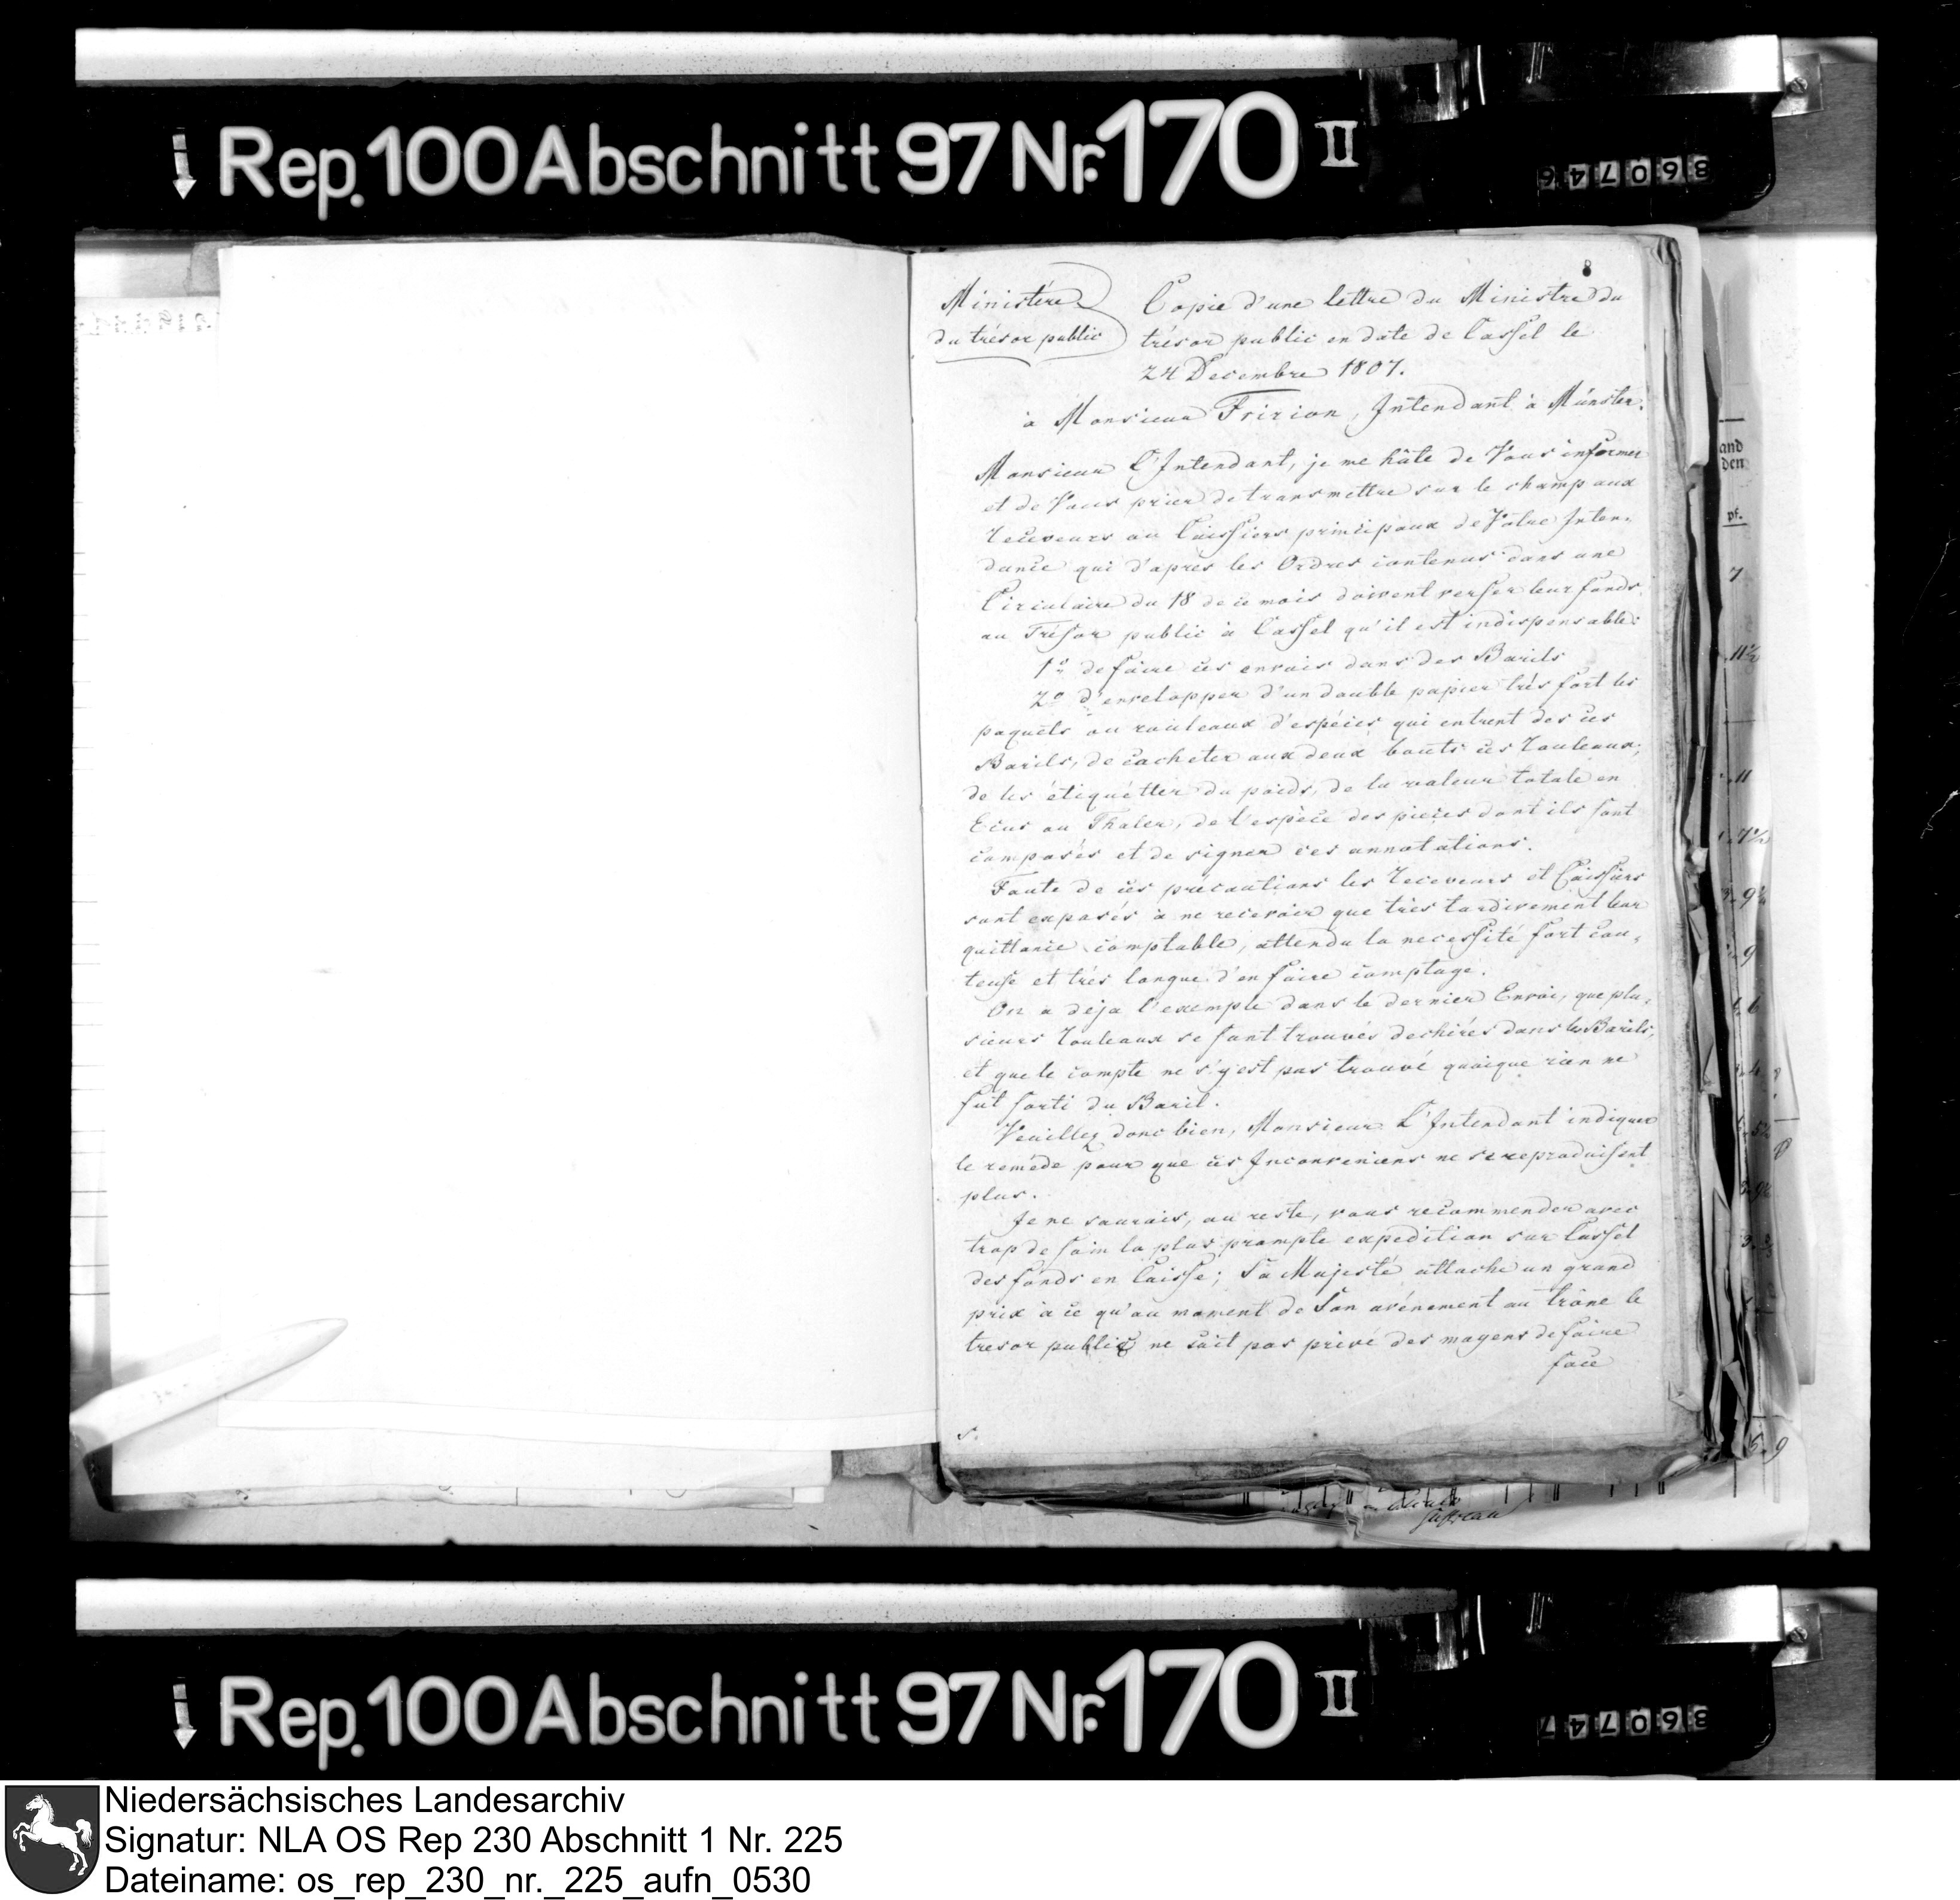 Rep. 100 Abschnitt 97 Nr. 170 II
860746
8
Ministère
du trésor public
Copie d'une lettre du Ministre du
trésor public en date de Cassel le
24 Decembre 1807.
à Monsieur Fririon, Intendant à Münster.
Monsieur l'Intendant, je me hâte de Vous informer
et de Vous prier de transmettre sur le champ aux
Receveurs ou Caissiers principaux de Votre Inten-
dance qui d'après les Ordres contenus dans une
Circulaire du 18 de ce mois doivent verser leur fonds
au Trésor public à Cassel qu'il est indispensable:
1º de faire ces envois dans des Barils
2º d'envelopper d'un double papier très fort les
paquets ou rouleaux d'espéces qui entrent des ces
Barils, de cacheter aux deux bouts ces Rouleaux;
de les étiquétter du poids, de la valeur totale en
Ecus ou Thaler, de l'espèce des pieces dont ils sont
composés et de signer ces annotations.
Faute de ces précautions les Receveurs et Caissiers
sont exposés à ne recevoir que très tardivement leur
quittance comptable, attendu la necessité fort cou-
teuse et trés longue d'en faire comptage.
On a déja l'exemple dans le dernier Envoi, que plu-
sieurs Rouleaux se sont trouvés dechirés dans les Barils,
et que le compte ne s'y est pas trouvé quoique rien ne
fut sorti du Baril.
Veuillez donc bien, Monsieur L'Intendant indiquer
le reméde pour que ces Inconveniens ne se reproduisent
plus.
Je ne saurais, au reste, vous recommender avec
trop de soin la plus prompte expedition sur Cassel
des fonds en Caisse; Sa Majesté attache un grand
prix à ce qu'au moment de Son avénement au trône le
tresor public ne soit pas privé des moyens de faire
face
s.
and
den
pf.
7
11
5. 9
Rep. 100 Abschnitt 97 Nr. 170 II
860747
Niedersächsisches Landesarchiv
Signatur: NLA OS Rep 230 Abschnitt 1 Nr. 225
Dateiname: os_rep_230_nr._225_aufn_0530